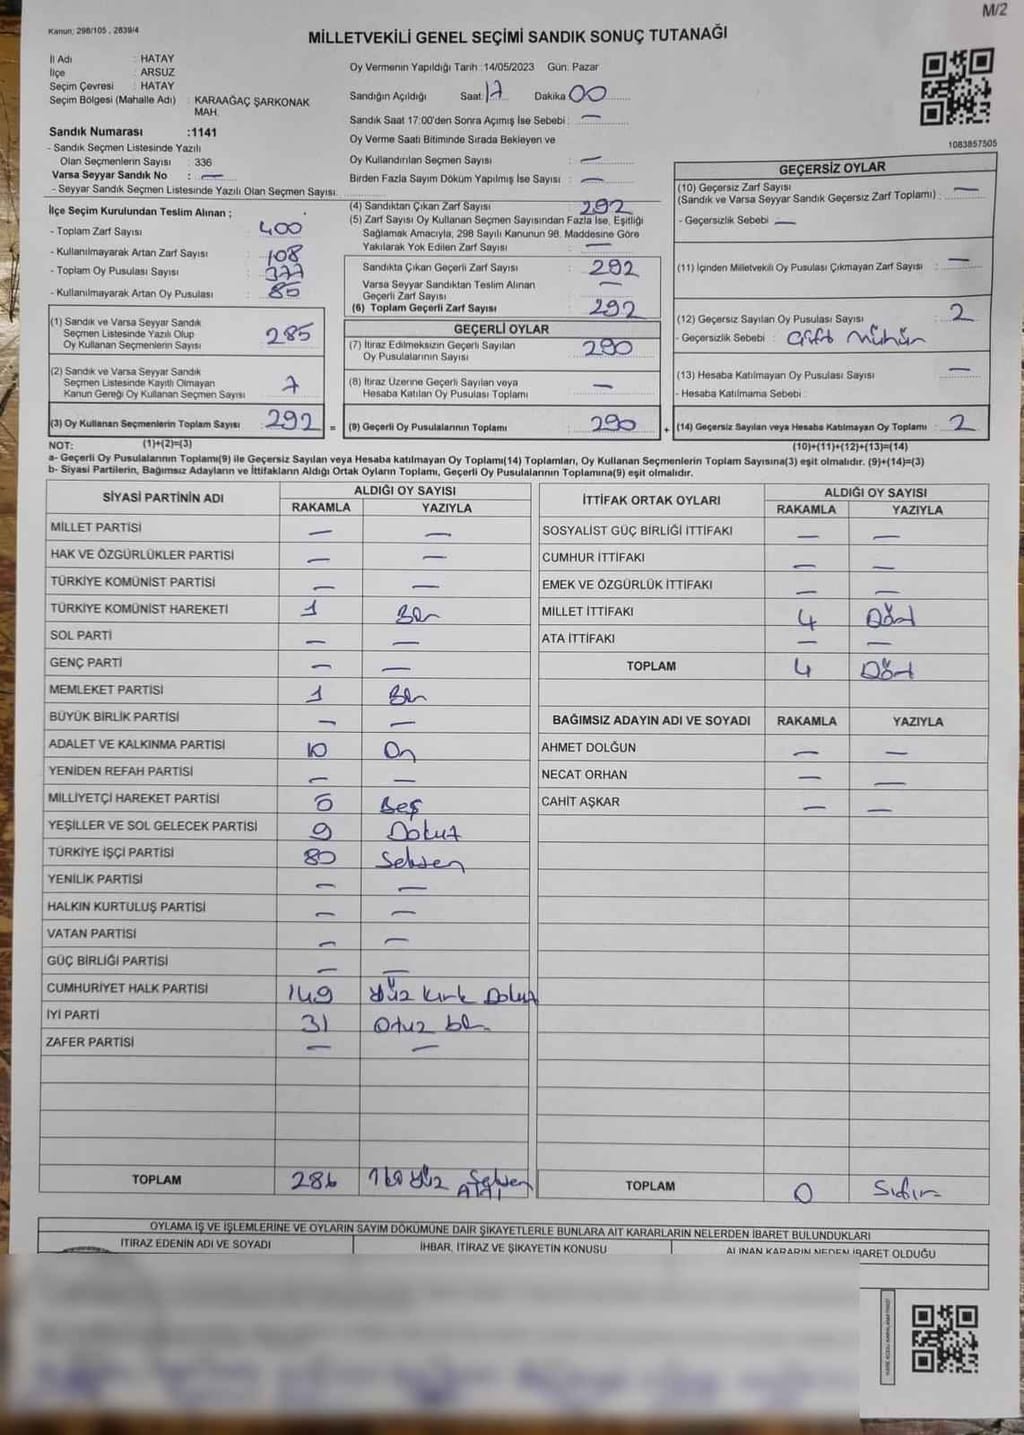 M/2
Kanun: 298/105 , 2839/4
MİLLETVEKİLİ GENEL SEÇİMİ SANDIK SONUÇ TUTANAĞI
İl Adı : HATAY
İlçe : ARSUZ
Seçim Çevresi : HATAY
Seçim Bölgesi (Mahalle Adı) : KARAAĞAÇ ŞARKONAK MAH.
Sandık Numarası :1141
- Sandık Seçmen Listesinde Yazılı
Olan Seçmenlerin Sayısı : 336
Varsa Seyyar Sandık No : —
- Seyyar Sandık Seçmen Listesinde Yazılı Olan Seçmen Sayısı:
Oy Vermenin Yapıldığı Tarih :14/05/2023 Gün: Pazar
Sandığın Açıldığı Saat 17 Dakika 00
Sandık Saat 17:00'den Sonra Açımış İse Sebebi : —
Oy Verme Saati Bitiminde Sırada Bekleyen ve
Oy Kullandırılan Seçmen Sayısı : —
Birden Fazla Sayım Döküm Yapılmış İse Sayısı : —
1083857505
İlçe Seçim Kurulundan Teslim Alınan ;
- Toplam Zarf Sayısı : 400
- Kullanılmayarak Artan Zarf Sayısı : 108
- Toplam Oy Pusulası Sayısı : 377
- Kullanılmayarak Artan Oy Pusulası : 85
(1) Sandık ve Varsa Seyyar Sandık
Seçmen Listesinde Yazılı Olup
Oy Kullanan Seçmenlerin Sayısı : 285
(2) Sandık ve Varsa Seyyar Sandık
Seçmen Listesinde Kayıtlı Olmayan
Kanun Gereği Oy Kullanan Seçmen Sayısı : 7
(3) Oy Kullanan Seçmenlerin Toplam Sayısı : 292 =
(4) Sandıktan Çıkan Zarf Sayısı : 292
(5) Zarf Sayısı Oy Kullanan Seçmen Sayısından Fazla İse, Eşitliği
Sağlamak Amacıyla, 298 Sayılı Kanunun 98. Maddesine Göre
Yakılarak Yok Edilen Zarf Sayısı : —
Sandıkta Çıkan Geçerli Zarf Sayısı : 292
Varsa Seyyar Sandıktan Teslim Alınan
Geçerli Zarf Sayısı : —
(6) Toplam Geçerli Zarf Sayısı : 292
GEÇERLİ OYLAR
(7) İtiraz Edilmeksizin Geçerli Sayılan
Oy Pusulalarının Sayısı : 290
(8) İtiraz Üzerine Geçerli Sayılan veya
Hesaba Katılan Oy Pusulası Toplamı : —
(9) Geçerli Oy Pusulalarının Toplamı : 290 +
GEÇERSİZ OYLAR
(10) Geçersiz Zarf Sayısı
(Sandık ve Varsa Seyyar Sandık Geçersiz Zarf Toplamı) : —
- Geçersizlik Sebebi : —
(11) İçinden Milletvekili Oy Pusulası Çıkmayan Zarf Sayısı : —
(12) Geçersiz Sayılan Oy Pusulası Sayısı : 2
- Geçersizlik Sebebi : Çift Mühür
(13) Hesaba Katılmayan Oy Pusulası Sayısı : —
- Hesaba Katılmama Sebebi :
(14) Geçersiz Sayılan veya Hesaba Katılmayan Oy Toplamı : 2
NOT: (1)+(2)=(3) (10)+(11)+(12)+(13)=(14)
a- Geçerli Oy Pusulalarının Toplamı(9) ile Geçersiz Sayılan veya Hesaba katılmayan Oy Toplamı(14) Toplamları, Oy Kullanan Seçmenlerin Toplam Sayısına(3) eşit olmalıdır. (9)+(14)=(3)
b- Siyasi Partilerin, Bağımsız Adayların ve İttifakların Aldığı Ortak Oyların Toplamı, Geçerli Oy Pusulalarının Toplamına(9) eşit olmalıdır.
SİYASİ PARTİNİN ADI ALDIĞI OY SAYISI
RAKAMLA YAZIYLA
MİLLET PARTİSİ — —
HAK VE ÖZGÜRLÜKLER PARTİSİ — —
TÜRKİYE KOMÜNİST PARTİSİ — —
TÜRKİYE KOMÜNİST HAREKETİ 1 Bir
SOL PARTİ — —
GENÇ PARTİ — —
MEMLEKET PARTİSİ 1 Bir
BÜYÜK BİRLİK PARTİSİ — —
ADALET VE KALKINMA PARTİSİ 10 On
YENİDEN REFAH PARTİSİ — —
MİLLİYETÇİ HAREKET PARTİSİ 5 Beş
YEŞİLLER VE SOL GELECEK PARTİSİ 9 Dokuz
TÜRKİYE İŞÇİ PARTİSİ 80 Seksen
YENİLİK PARTİSİ — —
HALKIN KURTULUŞ PARTİSİ — —
VATAN PARTİSİ — —
GÜÇ BİRLİĞİ PARTİSİ — —
CUMHURİYET HALK PARTİSİ 149 Yüz Kırk Dokuz
İYİ PARTİ 31 Otuz bir
ZAFER PARTİSİ — —
TOPLAM 286 İki Yüz Seksen Altı
İTTİFAK ORTAK OYLARI ALDIĞI OY SAYISI
RAKAMLA YAZIYLA
SOSYALİST GÜÇ BİRLİĞİ İTTİFAKI — —
CUMHUR İTTİFAKI — —
EMEK VE ÖZGÜRLÜK İTTİFAKI — —
MİLLET İTTİFAKI 4 Dört
ATA İTTİFAKI — —
TOPLAM 4 Dört
BAĞIMSIZ ADAYIN ADI VE SOYADI RAKAMLA YAZIYLA
AHMET DOLĞUN — —
NECAT ORHAN — —
CAHİT AŞKAR — —
TOPLAM 0 Sıfır
OYLAMA İŞ VE İŞLEMLERİNE VE OYLARIN SAYIM DÖKÜMÜNE DAİR ŞİKAYETLERLE BUNLARA AİT KARARLARIN NELERDEN İBARET BULUNDUKLARI
İTİRAZ EDENİN ADI VE SOYADI İHBAR, İTİRAZ VE ŞİKAYETİN KONUSU ALINAN KARARIN NEDEN İBARET OLDUĞU